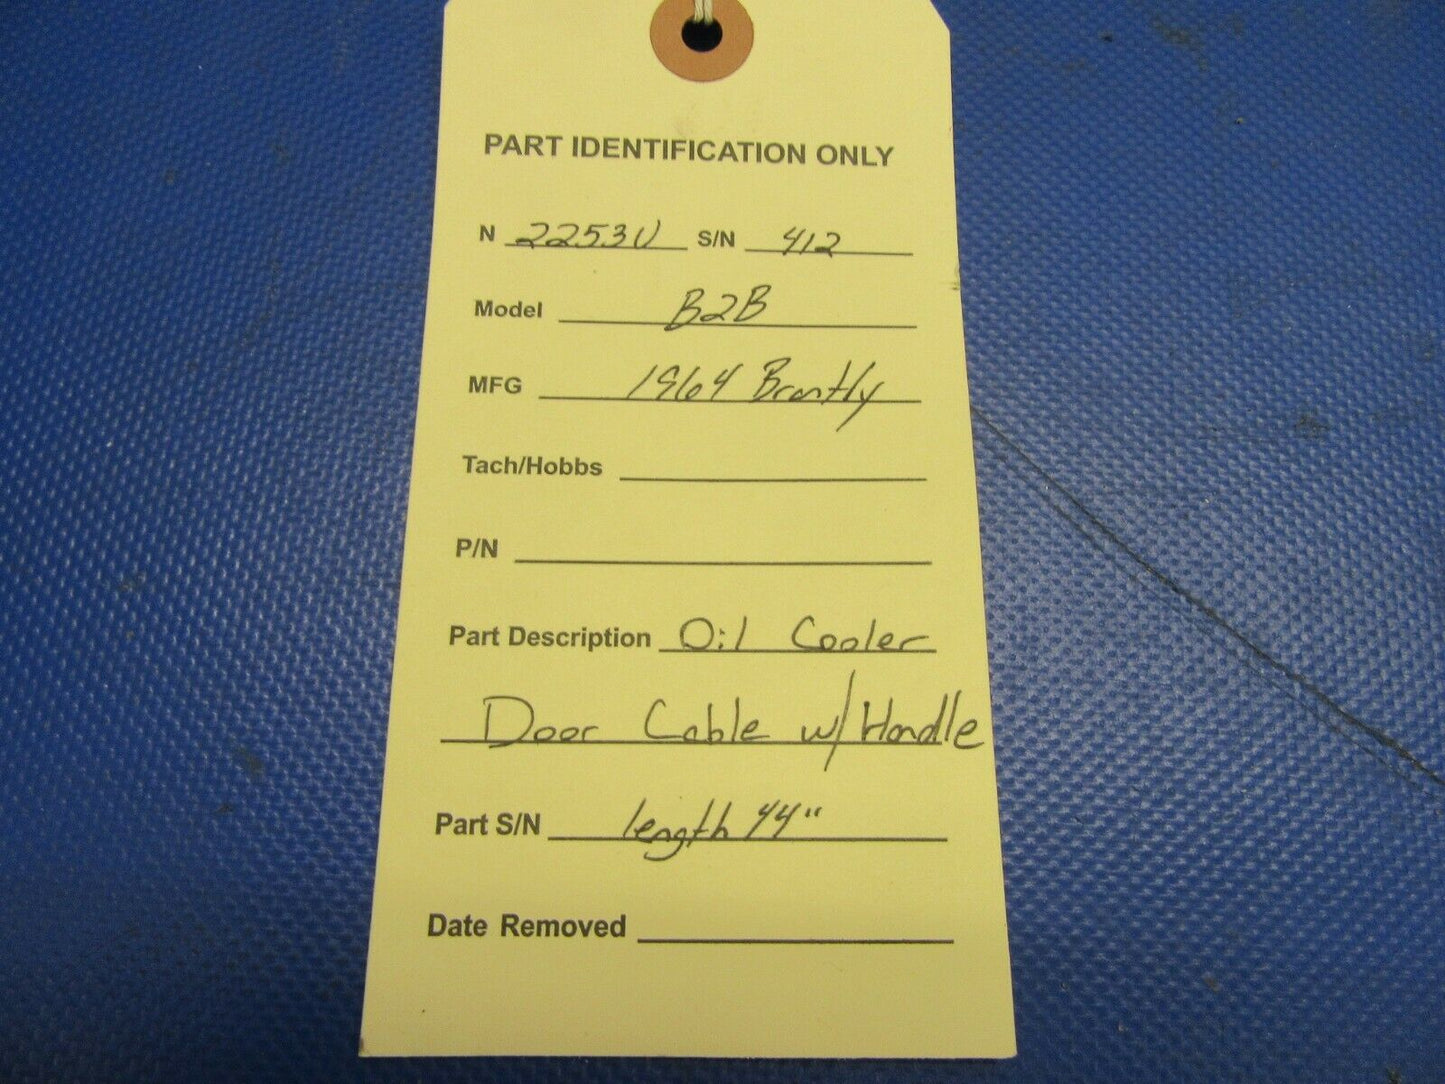 PART IDENTIFICATION ONLY
N 2253U S/N 412
Model B2B
MFG 1964 Brantly
Tach/Hobbs
P/N
Part Description Oil Cooler
Door Cable w/ Handle
Part S/N length 44"
Date Removed